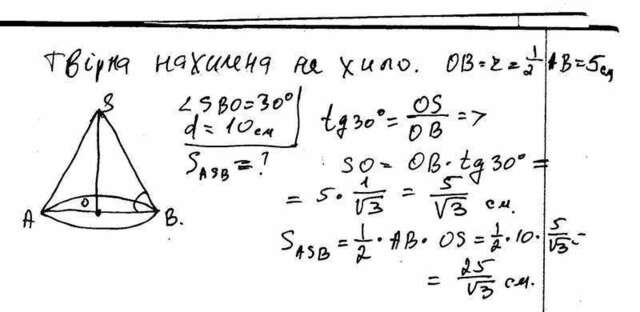 твірна нахилена не хило. OB = r = 1/2 AB = 5 см
∠SBO = 30°
d = 10 см
S_ASB = ?
tg 30° = OS/OB =>
SO = OB · tg 30° =
= 5 · 1/√3 = 5/√3 см.
S_ASB = 1/2 · AB · OS = 1/2 · 10 · 5/√3 =
= 25/√3 см.
S
O
A
B.